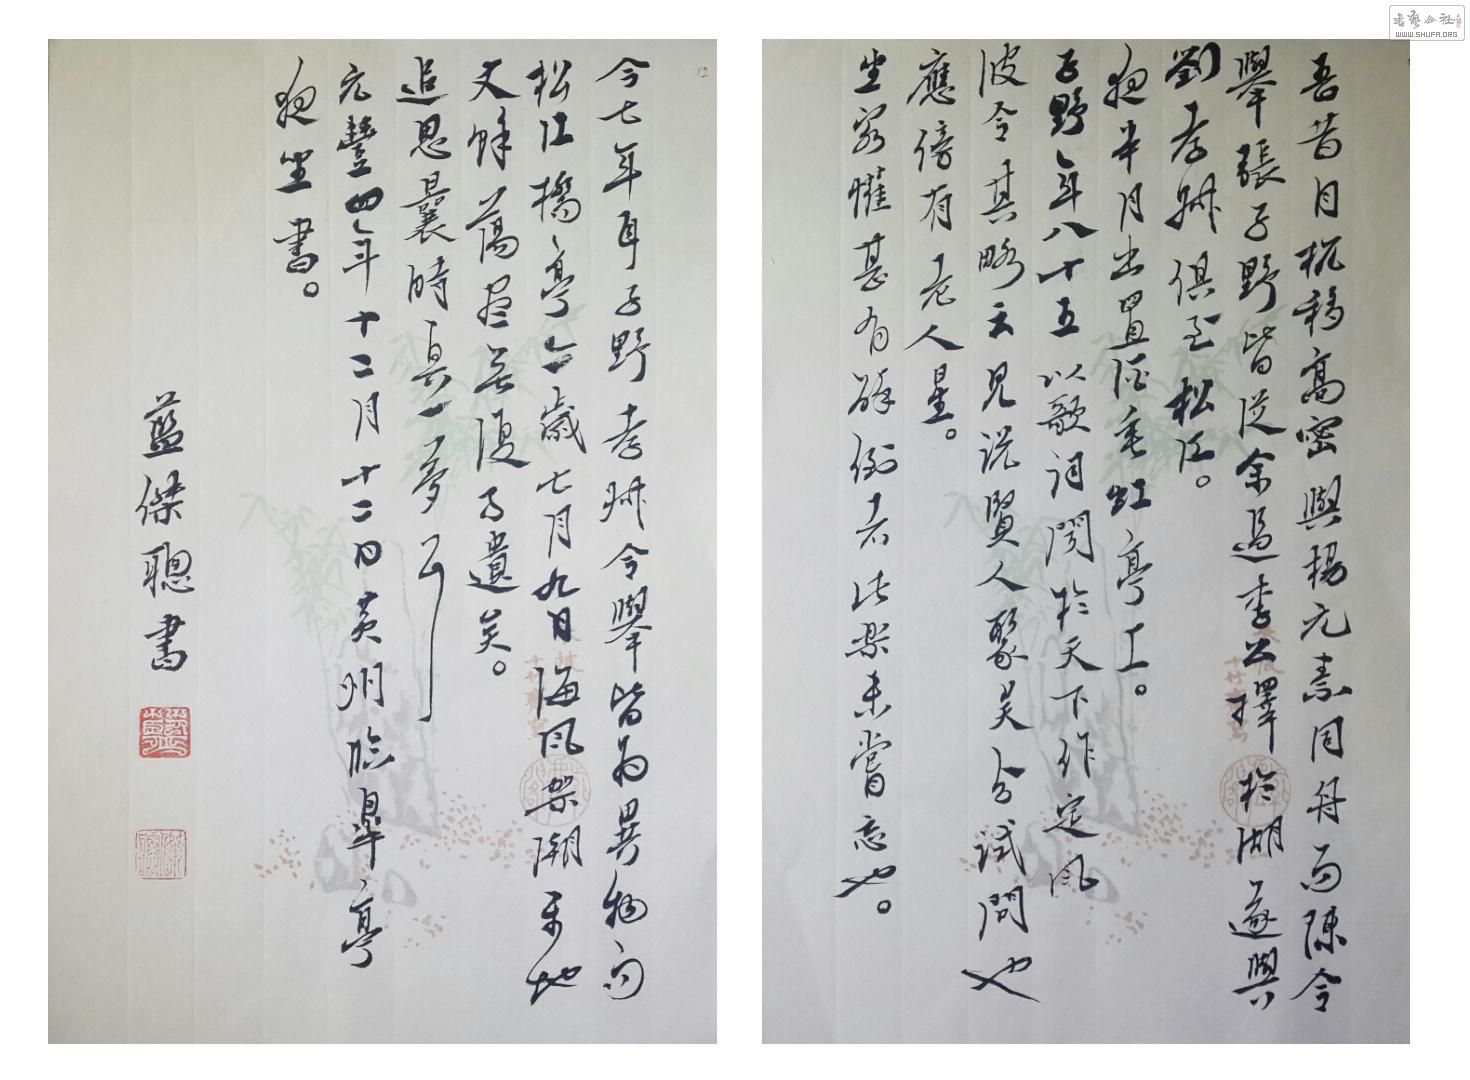 吾昔自杭移高密與楊元素同舟而陳令
舉張子野皆從余過李公擇於湖遂與
劉孝叔俱至松江。
夜半月出置酒垂虹亭上。
子野年八十五以歌詞聞於天下作定風
波令其略云見說賢人聚吳分試問也
應傍有老人星。
坐客懽甚有醉倒者此樂未嘗忘也。
今七年耳子野孝叔令舉皆為異物而
松江橋亭今歲七月九日海風架潮平地
丈餘蕩盡無復孑遺矣。
追思曩時真一夢耳
元豐四年十二月十二日黃州臨皋亭
夜坐書。
藍傑聰書
書藝公社
WWW.SHUFA.ORG